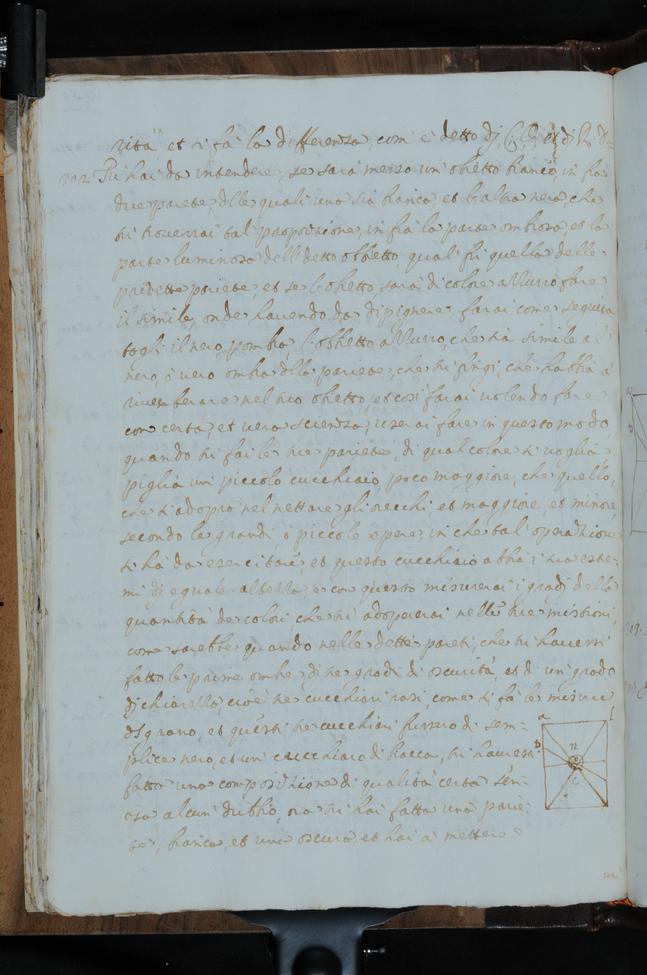 rità, et si fà la differenza, com' è detto dj C, D, et di R, D.
702 Tu hai da intendere, se sarà messo un' obietto bianco, in fra
due pariete, delle quali una sia bianca, et l'altra nera, che
tu troverrai tal' proporzione, in frà la parte ombrosa, et la
parte luminosa dell' detto obbietto, qual fù quella delle
predette pariete, et se l'obietto sarà di colore azzurro fare
il simile, onde havendo da dipignere farai come seguita
togli il nero p ombrà l'obbietto azzurro, che sia simile al
nero, ò vero ombra della pariete, che tu fingi, che habbia à
riverberare nel tuo obietto, et così farai volendo fare
con certa et vera scienza, userai fare in questo modo
quando tu fai le tue pariete, di qual colore si voglia
piglia un piccolo cucchiaio, poco maggiore, che quello,
che s' adopro nel nettare gli orecchi et maggiore, et minore,
secondo le grandi, ò piccole opere, in che tal' operazione
s' ha da esercitare, et questo cucchiaio abbia i sua estre-
mi dj eguale altezza, e con questo misurerai i gradj della
quantità de colori che tu adoperai nelle tue mistioni,
come sarebbe quando nelle dette pareti, che tu havessi
fatto le prime ombre dj tre gradi di oscurità, et d' un' grado
dj chiarezza, cioè tre cucchiari rasi, come si fà le misure
del grano, et questi tre cucchiari fussero di sem-
plice nero, et un' cucchiaro di biacca, tu havresti
fatto una composizione di qualità certa sen-
za alcun dubbio, ora tu hai fatto una parie-
te, bianca, et una oscura, et hai à mettere
a
D
n
C